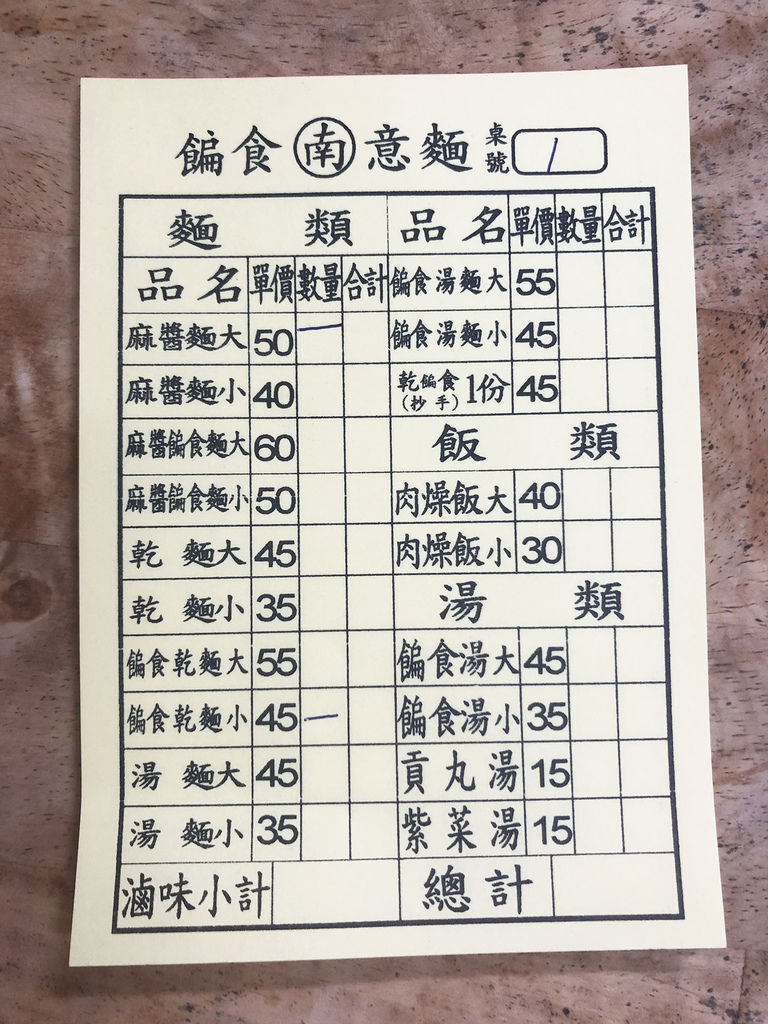 扁食南意麵 桌號 1
麵類
品名 單價 數量 合計
麻醬麵大 50 一
麻醬麵小 40
麻醬扁食麵大 60
麻醬扁食麵小 50
乾麵大 45
乾麵小 35
扁食乾麵大 55
扁食乾麵小 45 一
湯麵大 45
湯麵小 35
滷味小計
品名 單價 數量 合計
扁食湯麵大 55
扁食湯麵小 45
乾扁食(抄手)1份 45
飯類
肉燥飯大 40
肉燥飯小 30
湯類
扁食湯大 45
扁食湯小 35
貢丸湯 15
紫菜湯 15
總計